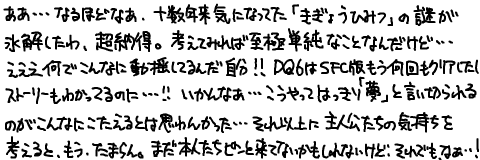 ああ…なるほどなあ、十数年来気になってた「きぎょうひみつ」の謎が
氷解したわ、超納得。考えてみれば至極単純なことなんだけど…
えええ何でこんなに動揺してるんだ自分!! DQ6はSFC版もう何回もクリアしたし
ストーリーもわかってるのに…!! いかんなあ…こうやってはっきり「夢」と言い切られる
のがこんなにこたえるとは思わんかった…それ以上に主人公たちの気持ちを
考えると、もう、たまらん。まだ本人たちピンと来てないかもしれないけど、それでもなぁ…!